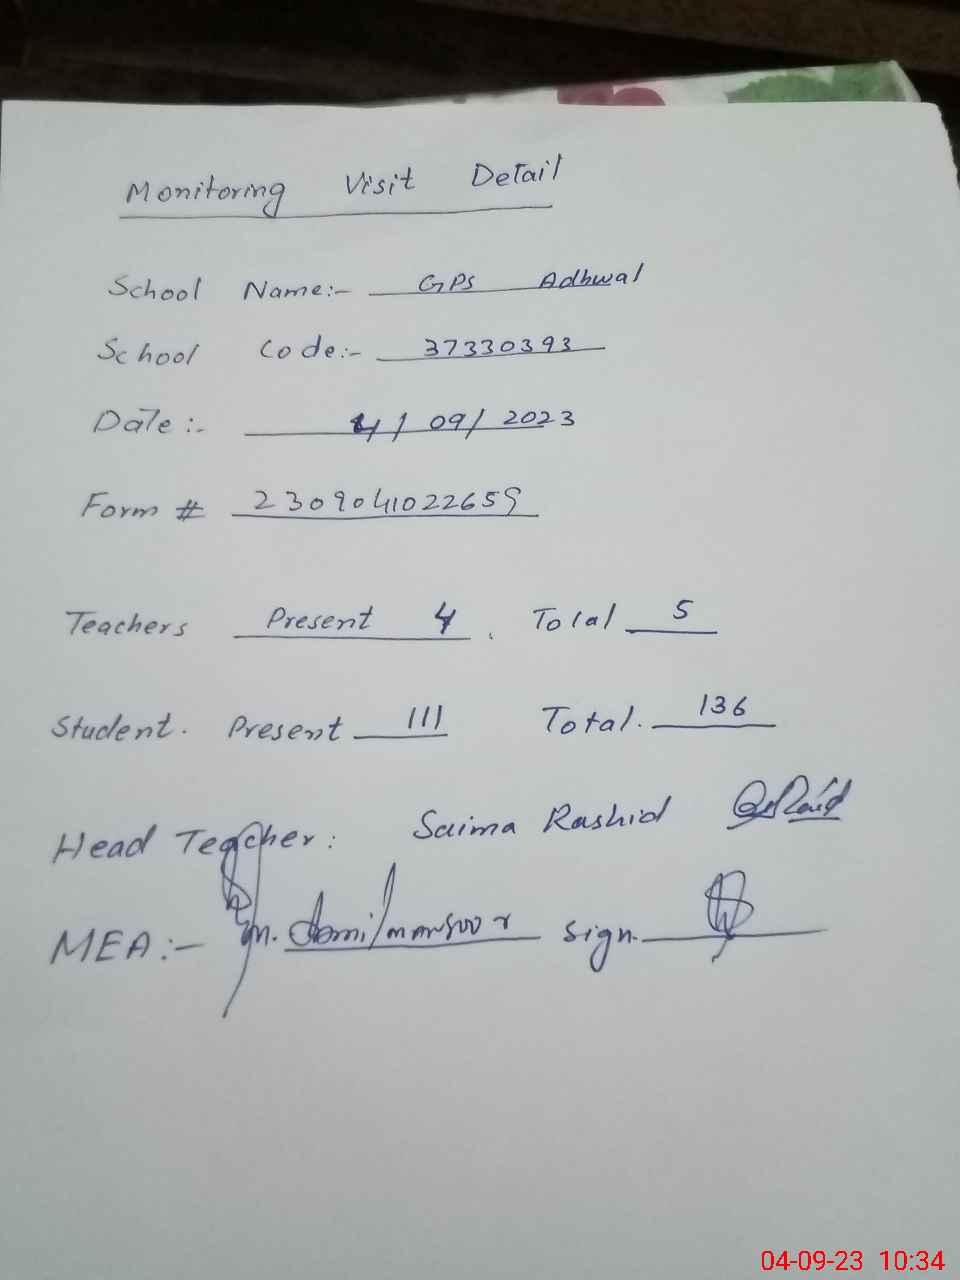 Monitoring Visit Detail
School Name:- GPS Adhwal
School Code:- 37330393
Date:- 4/09/2023
Form # 2309041022659
Teachers Present 4. Total 5
Student. Present 111 Total. 136
Head Teacher: Saima Rashid
MEA:- M. mansoor sign.
04-09-23 10:34